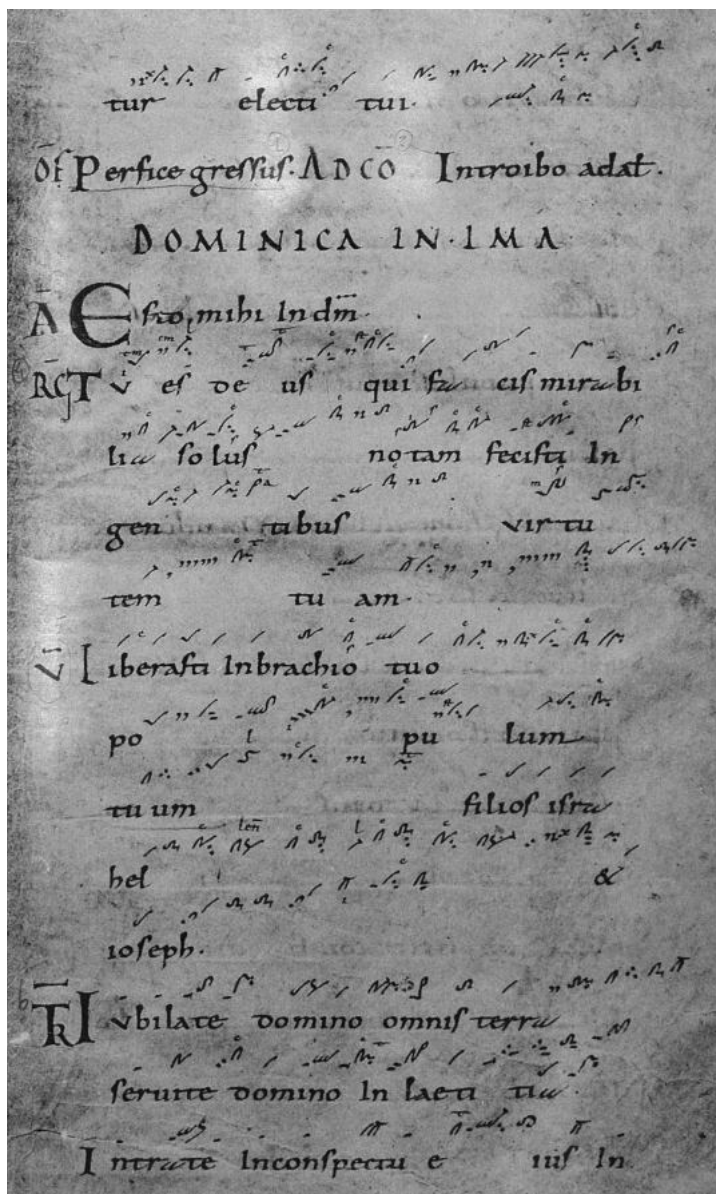 tur electi tui.
Of Perfice gressus. AD CO Introibo ad alt.
DOMINICA IN . L M A
A Esto mihi In dm
RG Tu es de us qui fa cis mirabi
lia so lus notam fecisti In
gen tibus virtu
tem tu am.
V Liberasti Inbrachio tuo
po pu lum
tu um filios isra
hel &
ioseph.
TR Iubilate domino omnis terra
seruite domino In laeti tia
Intrate Inconspectu e ius In